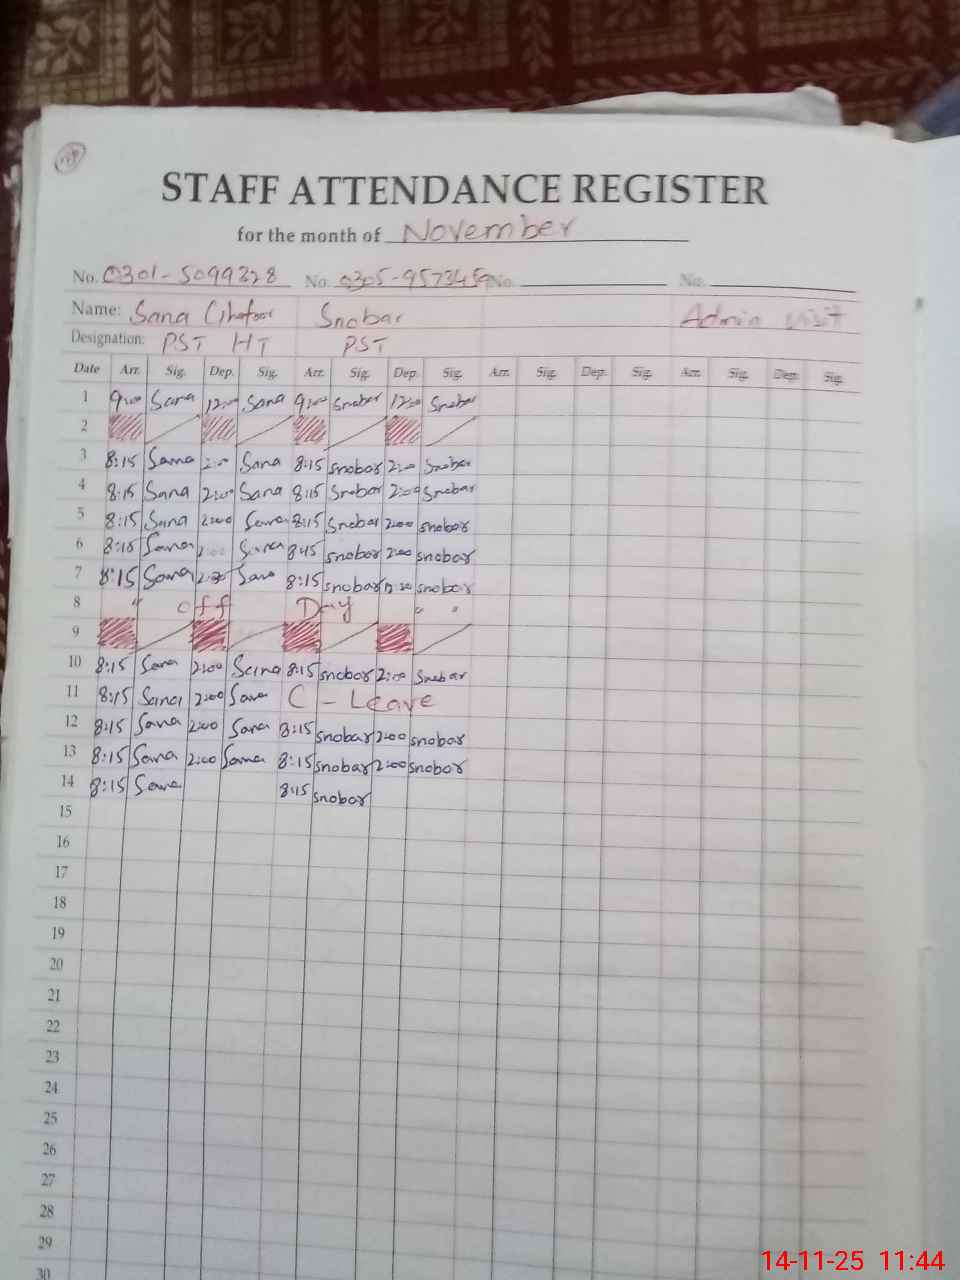 STAFF ATTENDANCE REGISTER
for the month of November
No. 0301-5099328 No. 0305-9573459 No. No.
Name: Sana Ghafoor Snobar Admin Visit
Designation: PST HT PST
Date Arr. Sig. Dep. Sig. Arr. Sig. Dep. Sig. Arr. Sig. Dep. Sig. Arr. Sig. Dep. Sig.
1 9:00 Sana 12:00 Sana 9:00 Snobar 12:00 Snobar
2
3 8:15 Sana 2:00 Sana 8:15 snobar 2:00 Snobar
4 8:15 Sana 2:00 Sana 8:15 Snobar 2:00 Snobar
5 8:15 Sana 2:00 Sana 8:15 Snobar 2:00 snobar
6 8:15 Sana 2:00 Sana 8:15 snobar 2:00 snobar
7 8:15 Sana Sana 8:15 snobar snobar
8 " off Day " "
9
10 8:15 Sana 2:00 Sana 8:15 snobar 2:00 Snobar
11 8:15 Sana 2:00 Sana C - Leave
12 8:15 Sana 2:00 Sana 8:15 snobar 2:00 snobar
13 8:15 Sana 2:00 Sana 8:15 snobar 2:00 snobar
14 8:15 Sana 8:15 snobar
15
16
17
18
19
20
21
22
23
24
25
26
27
28
29
30
14-11-25 11:44